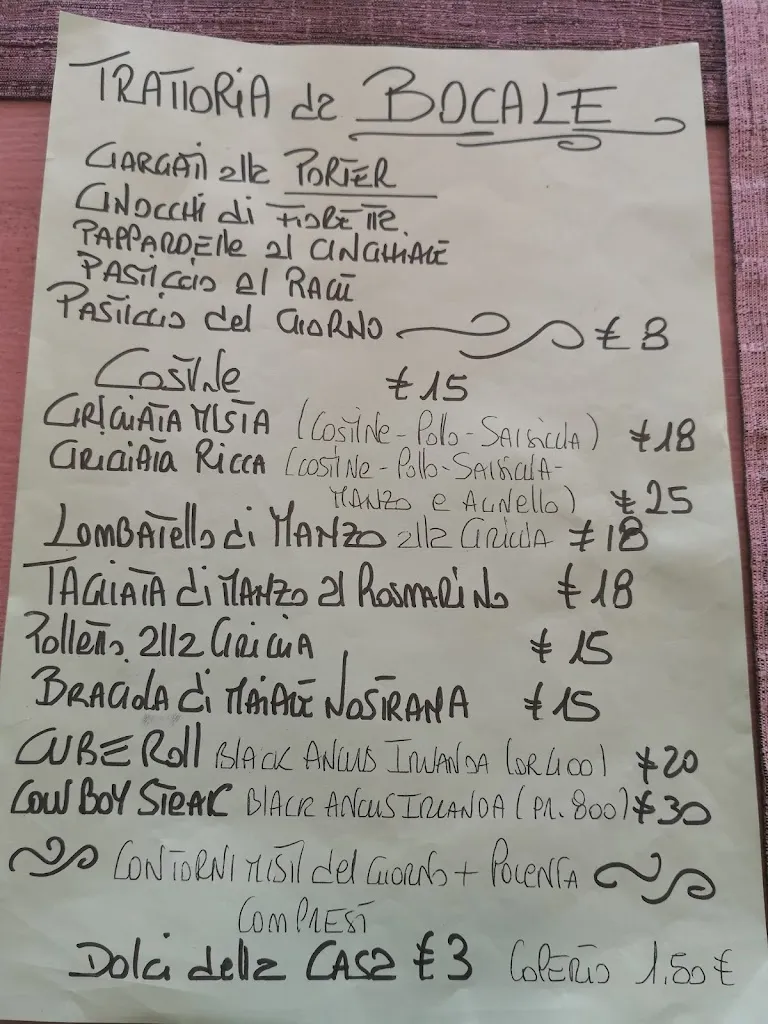 TRATTORIA da BOCALE
GARGATI alla PORTER
GNOCCHI di FIORETTA
PAPPARDELLE al CINGHIALE
PASTICCIO al RAGÙ
PASTICCIO del GIORNO € 8
COSTINE € 15
GRIGLIATA MISTA (COSTINE - POLLO - SALSICCIA) € 18
GRIGLIATA RICCA (COSTINE - POLLO - SALSICCIA -
MANZO e AGNELLO) € 25
LOMBATELLO di MANZO alla GRIGLIA € 18
TAGLIATA di MANZO al ROSMARINO € 18
POLLETTO alla GRIGLIA € 15
BRACIOLA di MAIALE NOSTRANA € 15
CUBE ROLL BLACK ANGUS IRLANDA (GR 400) € 20
COWBOY STEAK BLACK ANGUS IRLANDA (GR. 800) € 30
CONTORNI MISTI del GIORNO + POLENTA
COMPRESI
Dolci della CASA € 3 COPERTO 1,50 €